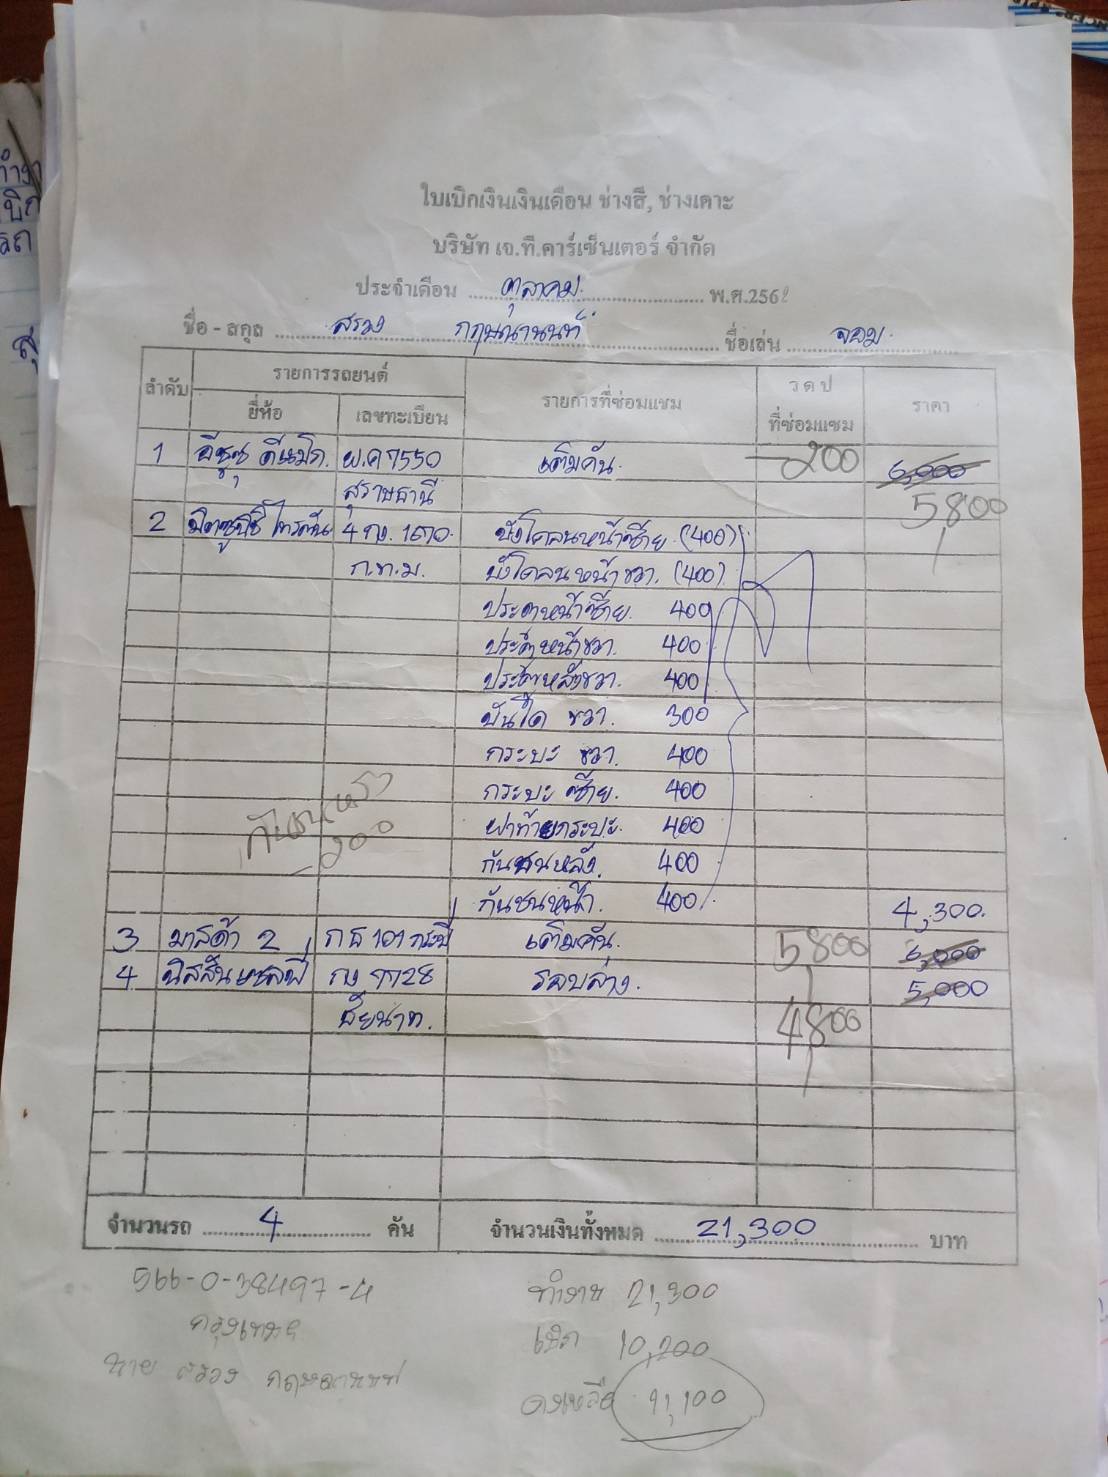 ใบเบิกเงินเงินเดือน ช่างสี, ช่างเคาะ
บริษัท เจ.ที.คาร์เซ็นเตอร์ จำกัด
ประจำเดือน ตุลาคม. พ.ศ.256
ชื่อ - สกุล สรวง ชื่อเล่น จอม.
ลำดับ รายการรถยนต์ รายการที่ซ่อมแซม ว ด ป ที่ซ่อมแซม ราคา
ยี่ห้อ เลขทะเบียน
1 อีซูซุ ดีแม็ก. ผ.ค 7550 เต็มคัน. -200 6,000
สุราษธานี 5800
2 มิตซูบิชิ ไทรตัน 4 กง. 1670. บังโคลนหน้าซ้าย. (400)
ก.ท.ม. บังโคลนหน้าขวา. (400)
ประตูหน้าซ้าย. 400
ประตูหน้าขวา. 400
ประตูหลังขวา. 400
บันได ขวา. 300
กระบะ ขวา. 400
กระบะ ซ้าย. 400
ฝาท้ายกระบะ. 400
กันชนหลัง. 400
-200
กันชนหน้า. 400 4,300.
3 มาสด้า 2 กธ 101 กระบี่ เต็มคัน. 5800 6,000
4 นิสสัน รอบล่าง. 5,000
ชัยนาท. 4800
จำนวนรถ 4 คัน จำนวนเงินทั้งหมด 21,300 บาท
566-0-38497-4 ทำงาน 21,300
กรุงเทพ เบิก 10,200
นาย สรวง
คงเหลือ 11,100